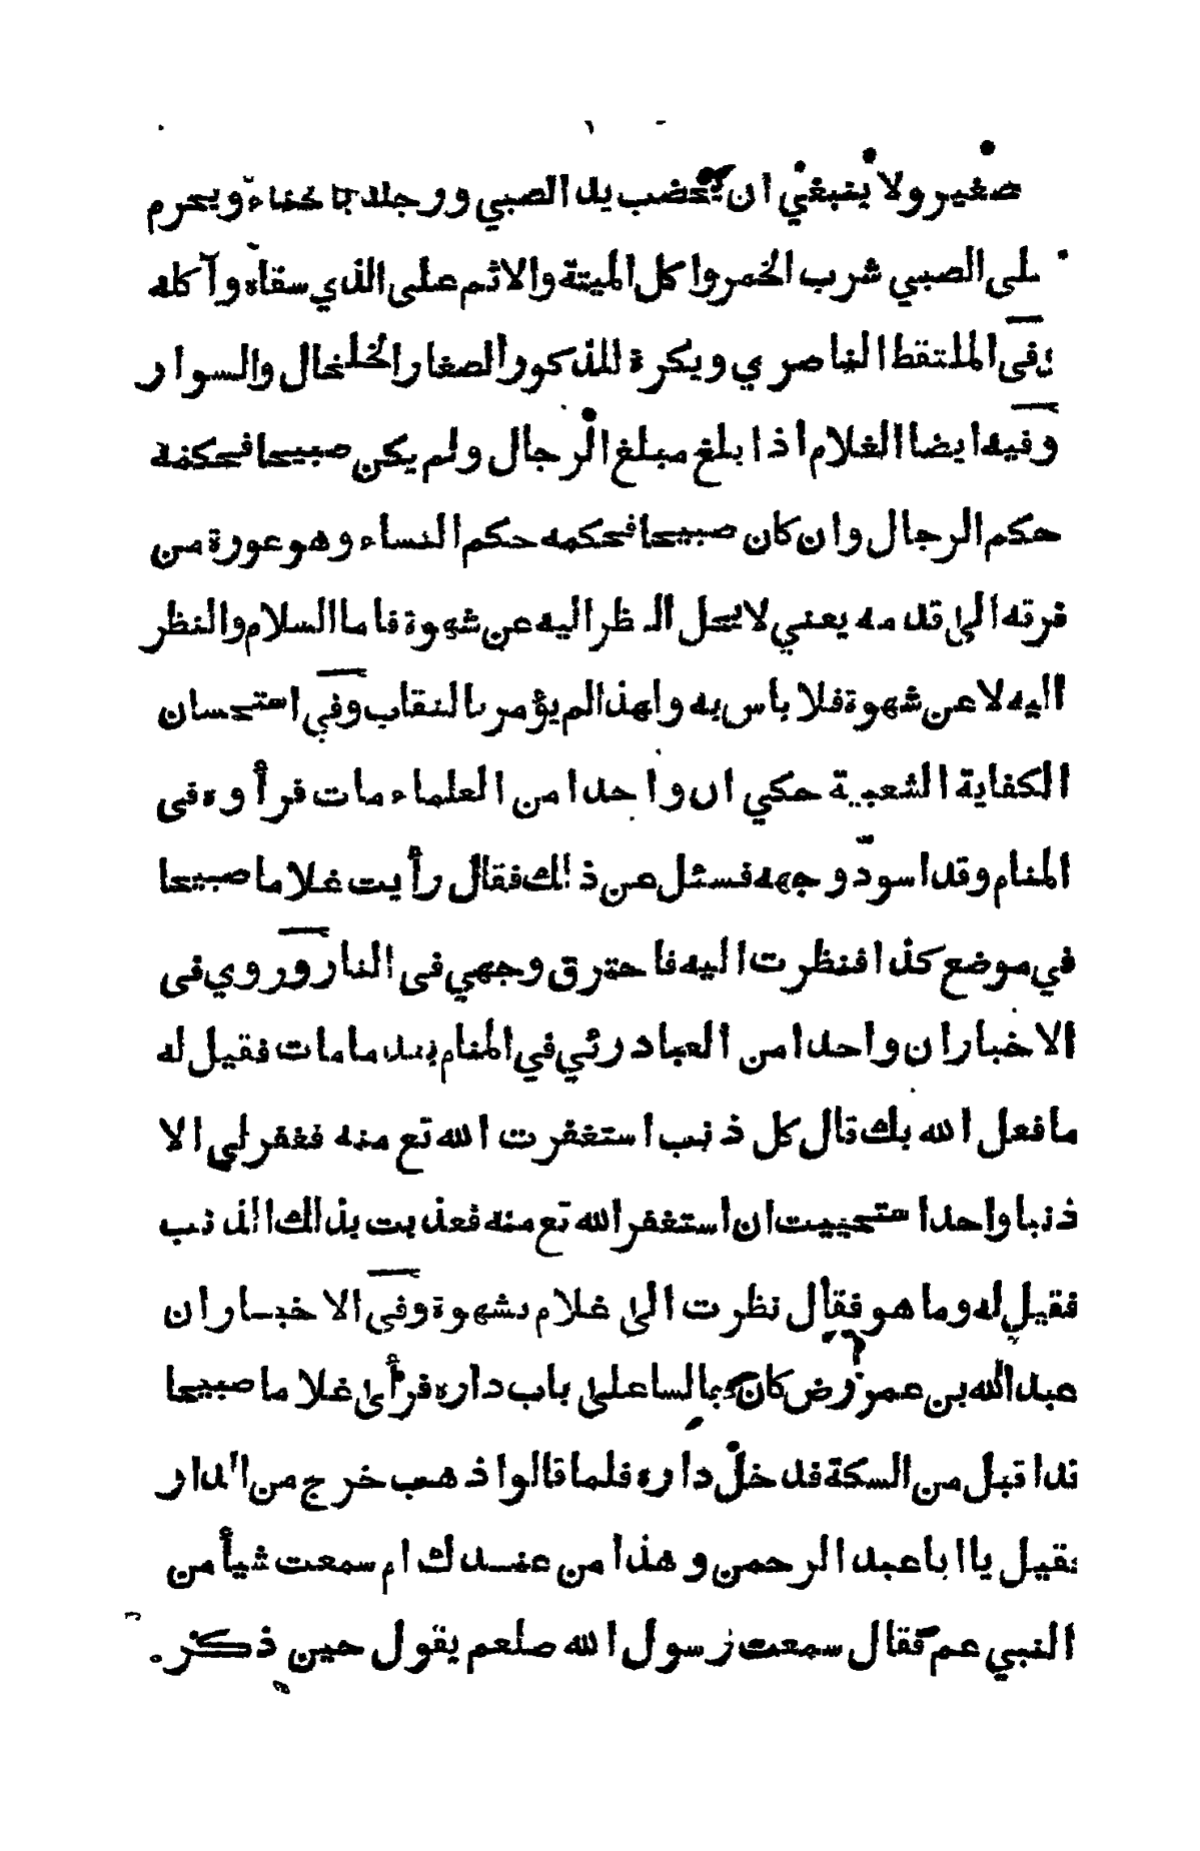 صغير ولا ينبغي ان يخضب يد الصبي ورجله بالحناء ويحرم
على الصبي شرب الخمر واكل الميتة والاثم على الذي سقاه وآكله
وفى الملتقط الناصري ويكرة للذكور الصغار الخلخال والسوار
وفيه ايضا الغلام اذا بلغ مبلغ الرجال ولم يكن صبيحا فحكمه
حكم الرجال وان كان صبيحا فحكمه حكم النساء وهو عورة من
فرقه الى قدمه يعني لا يحل النظر اليه عن شهوة فاما السلام والنظر
اليه لا عن شهوة فلا باس به ولهذا لم يؤمر بالنقاب وفي استحسان
الكفاية الشعبية حكي ان واحدا من العلماء مات فرأوه فى
المنام وقد اسودّ وجهه فسئل عن ذلك فقال رأيت غلاما صبيحا
في موضع كذا فنظرت اليه فاحترق وجهي فى النار وروي فى
الاخبار ان واحدا من العباد رئي في المنام بعد ما مات فقيل له
ما فعل الله بك قال كل ذنب استغفرت الله تع منه فغفر لي الا
ذنبا واحدا استحييت ان استغفر الله تع منه فعذبت بذالك الذنب
فقيل له وما هو فقال نظرت الى غلام بشهوة وفى الاخبار ان
عبد الله بن عمر رض كان جالسا على باب داره فرأى غلاما صبيحا
قد اقبل من السكة فدخل داره فلما قالوا ذهب خرج من الدار
فقيل يا ابا عبد الرحمن وهذا من عندك ام سمعت شيأ من
النبي عم فقال سمعت رسول الله صلعم يقول حين ذكر